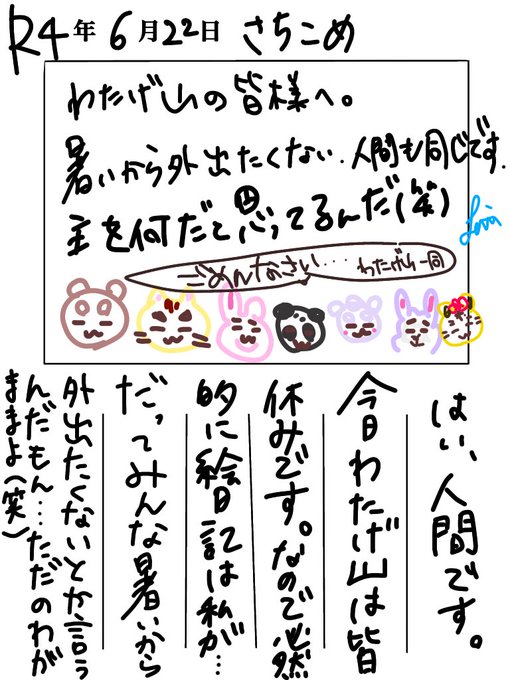 R4年 6月22日 さちこめ
わたげ山の皆様へ。
暑いから外出たくない.人間も同じです.
主を何だと思ってるんだ(笑)
ごめんなさい… わたげ山一同
はい、人間です。
今日わたげ山は皆
休みです。なので必然
的に絵日記は私が…
だってみんな暑いから
外出たくないとか言う
んだもん…ただのわが
ままよ(笑)